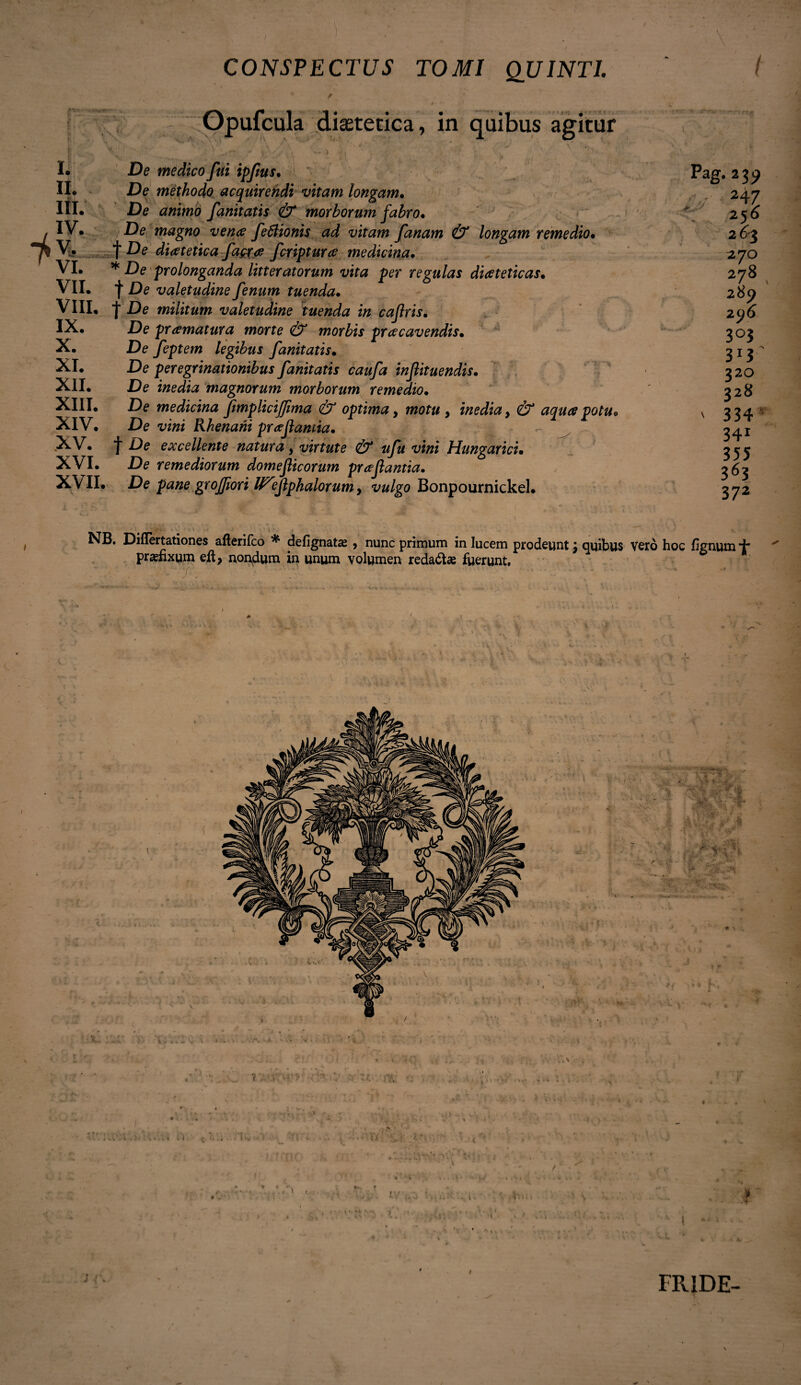 CONSPECTUS TOMI QUINTI.
Opuſcula diætetica, in quibus agitur
I. De medico ſui ipſius. Pag. 239
II. De methodo acquirendi vitam longam. 247
III. De animo ſanitatis & morborum fabro. 256
IV. De magno venæ ſectionis ad vitam ſanam & longam remedio. 263
V. † De diætetica ſacræ ſcripturæ medicina. 270
VI. * De prolonganda litteratorum vita per regulas diæteticas. 278
VII. † De valetudine ſenum tuenda. 289
VIII. † De militum valetudine tuenda in caſtris. 296
IX. De præmatura morte & morbis præcavendis. 303
X. De ſeptem legibus ſanitatis. 313
XI. De peregrinationibus ſanitatis cauſa inſtituendis. 320
XII. De inedia magnorum morborum remedio. 328
XIII. De medicina ſimpliciſſima & optima, motu, inedia, & aquæ potu. 334
XIV. De vini Rhenani præſtantia. 341
XV. † De excellente natura, virtute & uſu vini Hungarici. 355
XVI. De remediorum domeſticorum præſtantia. 363
XVII. De pane groſſiori Weſtphalorum, vulgo Bonpournickel. 372
NB. Diſſertationes aſteriſco * deſignatæ, nunc primum in lucem prodeunt; quibus verò hoc ſignum †
præfixum eſt, nondum in unum volumen redactæ fuerunt.
FRIDE-